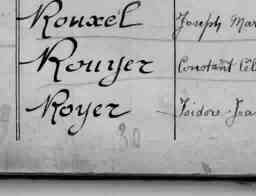 Rouxel Joseph Mar
Rouyer Constant Cél
Royer Isidore Jea
30